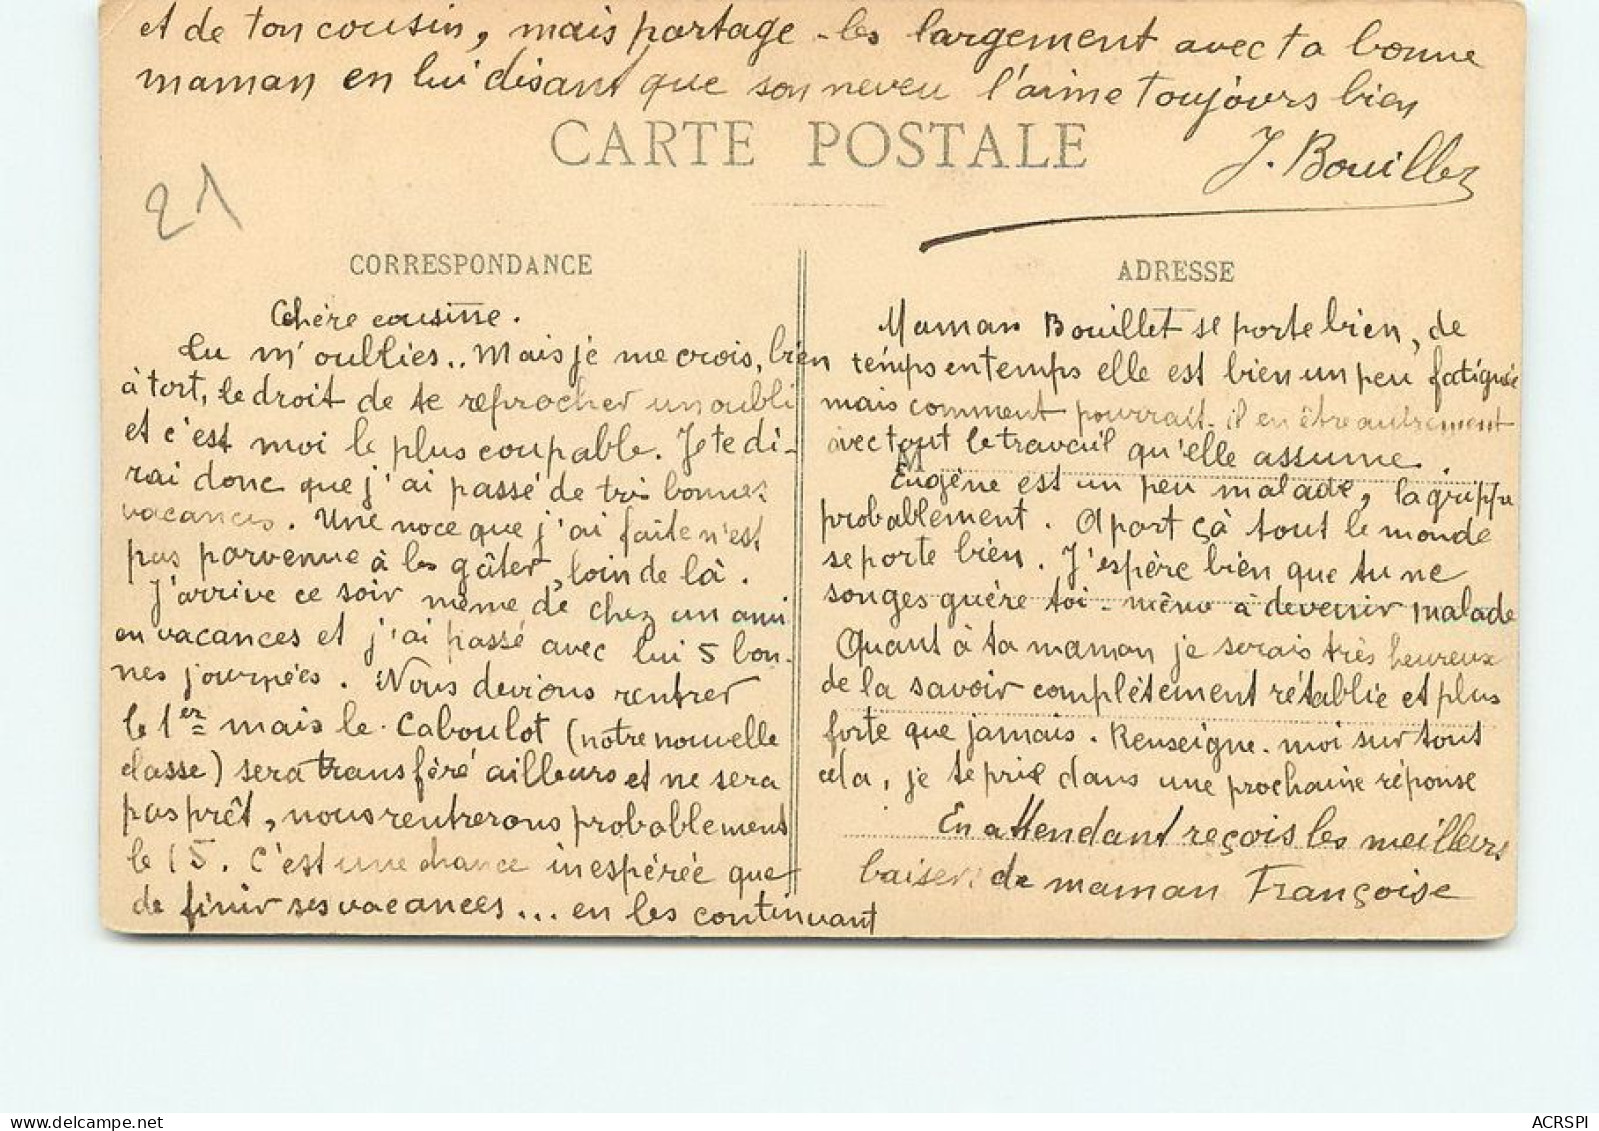 et de ton cousin, mais partage-les largement avec ta bonne
maman en lui disant que son neveu l'aime toujours bien
CARTE POSTALE
J. Bouillez
21
CORRESPONDANCE
Chère cousine.
Tu m'oublies.. Mais je me crois, bien
à tort, le droit de te reprocher un oubli
et c'est moi le plus coupable. Je te di-
rai donc que j'ai passé de très bonnes
vacances. Une noce que j'ai faite n'est
pas parvenue à les gâter, loin de là.
J'arrive ce soir même de chez un ami
en vacances et j'ai passé avec lui 5 bon-
nes journées. Nous devions rentrer
le 1er mais le Caboulot (notre nouvelle
classe) sera transféré ailleurs et ne sera
pas prêt, nous rentrerons probablement
le 15. C'est une chance inespérée que
de finir ses vacances... en les continuant
ADRESSE
Maman Bouillet se porte bien, de
temps en temps elle est bien un peu fatiguée
mais comment pourrait-il en être autrement
avec tout le travail qu'elle assume.
M
Eugène est un peu malade, la grippe
probablement. A part çà tout le monde
se porte bien. J'espère bien que tu ne
songes guère toi-même à devenir malade
Quant à ta maman je serais très heureux
de la savoir complètement rétablie et plus
forte que jamais. Renseigne-moi sur tout
cela, je te prie dans une prochaine réponse
En attendant reçois les meilleurs
baisers de maman Françoise
ACRSPI